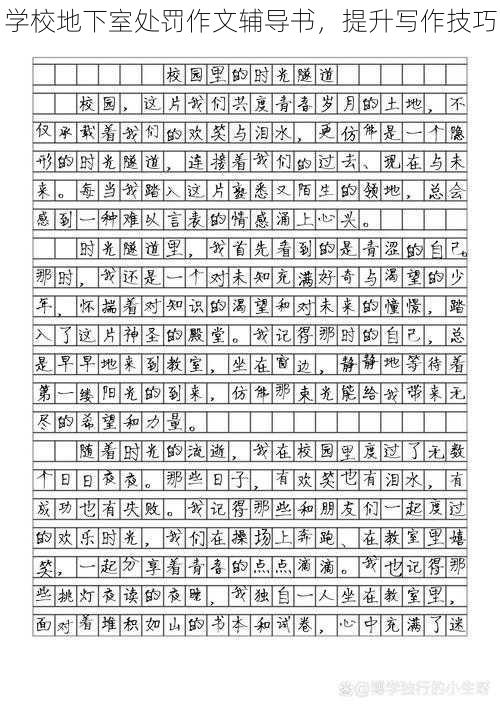 学校地下室处罚作文辅导书，提升写作技巧
校园里的时光隧道
校园，这片我们共度青春岁月的土地，不
仅承载着我们的欢笑与泪水，更仿佛是一个隐
形的时光隧道，连接着我们的过去、现在与未
来。每当我踏入这片熟悉又陌生的领地，总会
感到一种难以言表的情感涌上心头。
时光隧道里，我首先看到的是青涩的自己。
那时，我还是一个对未知充满好奇与渴望的少
年，怀揣着对知识的渴望和对未来的憧憬，踏
入了这片神圣的殿堂。我记得那时的自己，总
是早早地来到教室，坐在窗边，静静地等待着
第一缕阳光的到来，仿佛那束光能给我带来无
尽的希望和力量。
随着时光的流逝，我在校园里度过了无数
个日日夜夜。那些日子，有欢笑也有泪水，有
成功也有失败。我记得那些和朋友们一起度过
的欢乐时光，我们在操场上奔跑、在教室里嬉
笑，一起分享着青春的点点滴滴。我也记得那
些挑灯夜读的夜晚，我独自一人坐在教室里，
面对着堆积如山的书本和试卷，心中充满了迷
@博学独行的小生呀